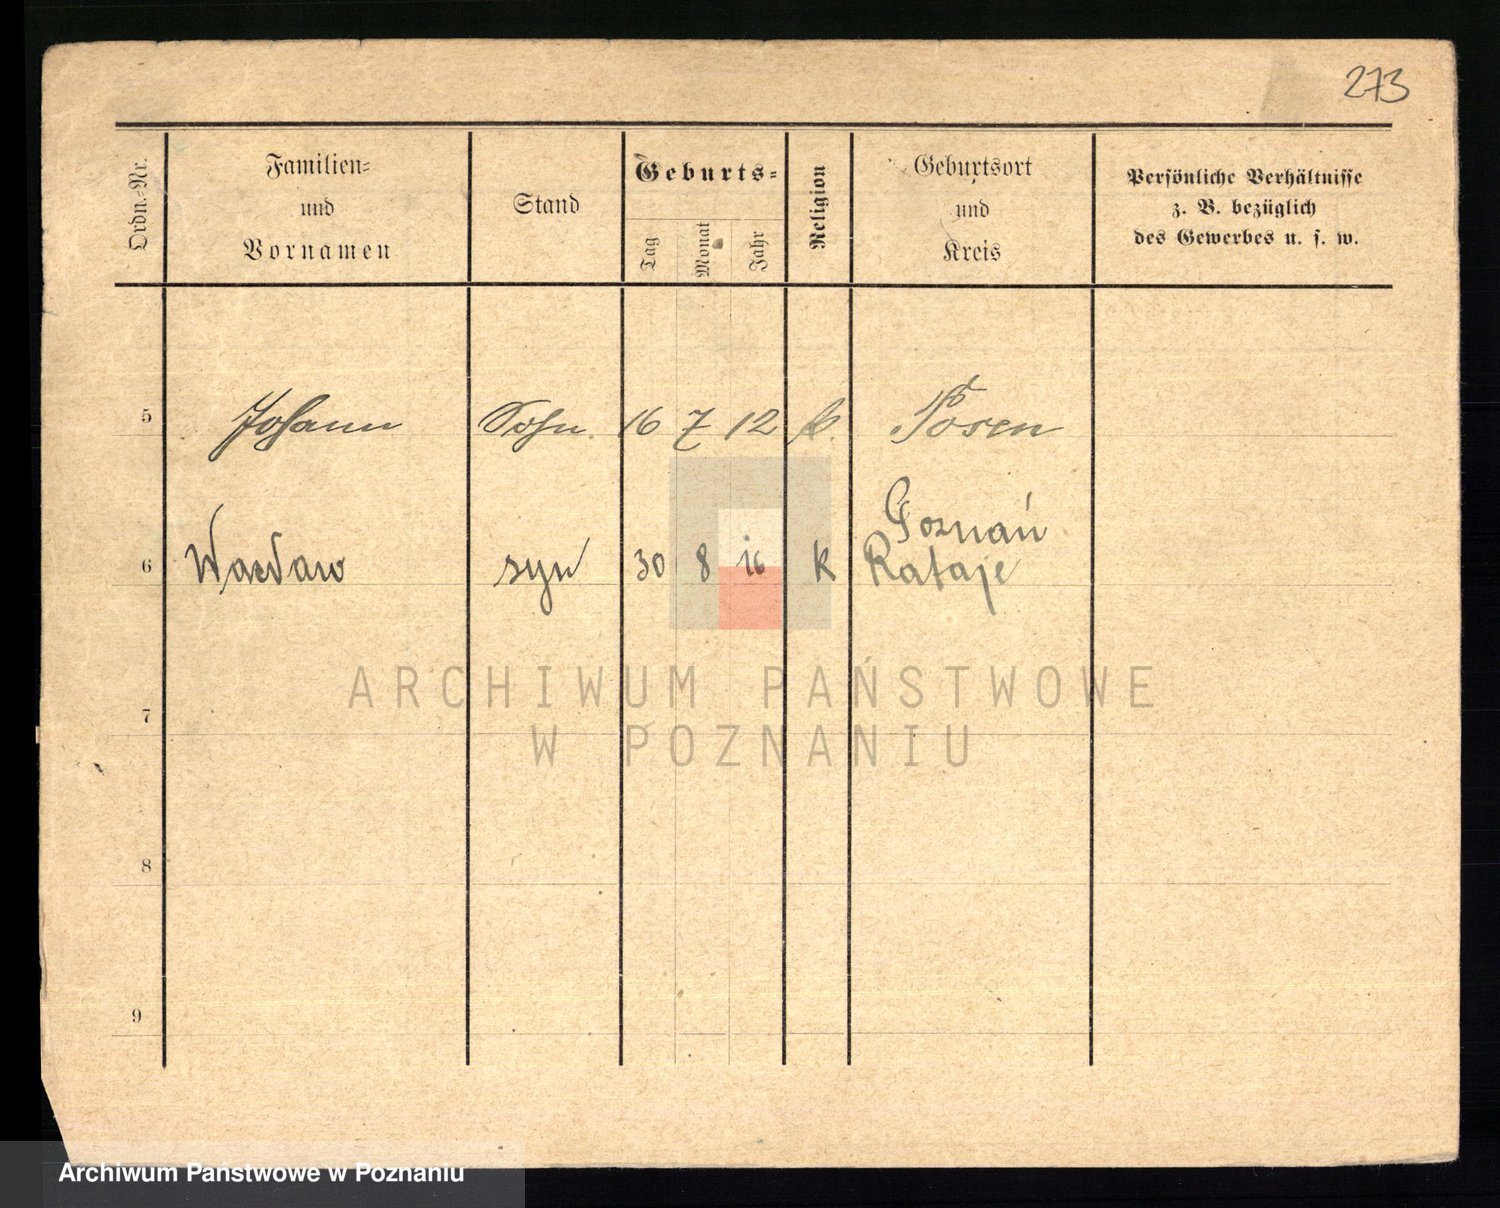 273
Ordn.-Nr.
Familien-
und
Vornamen
Stand
Geburts-
Tag
Monat
Jahr
Religion
Geburtsort
und
Kreis
Persönliche Verhältnisse
z. B. bezüglich
des Gewerbes u. s. w.
5 Johann Sohn. 16 7 12 k. Posen
6 Wacław syn 30 8 16 K Poznań
Rataje
7
8
9
ARCHIWUM PAŃSTWOWE
W POZNANIU
Archiwum Państwowe w Poznaniu